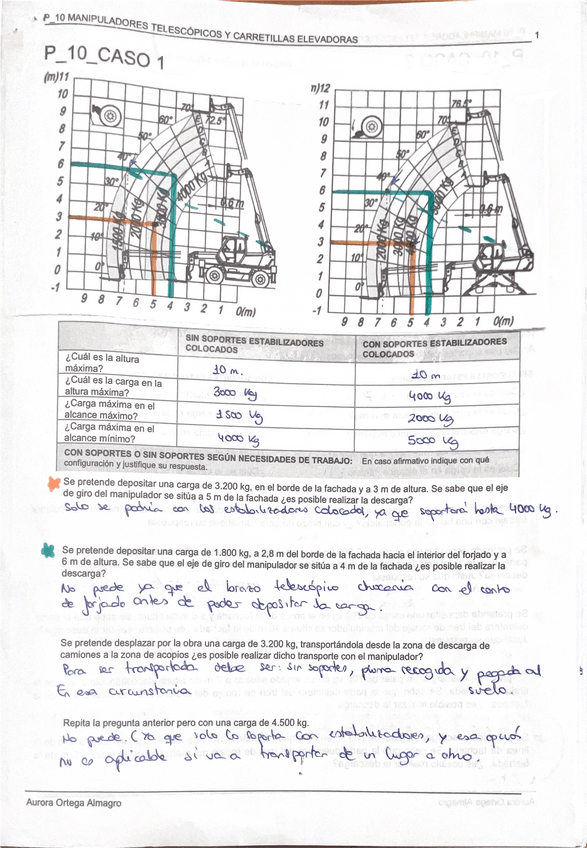 P_10 MANIPULADORES TELESCÓPICOS Y CARRETILLAS ELEVADORAS 1
P_10_CASO 1
(m)11
10
9
8
7
6
5
4
3
2
1
0
-1
9 8 7 6 5 4 3 2 1 0(m)
70°
72.5°
60°
50°
40°
30°
20°
10°
0°
2000 Kg
4000 Kg
0.6 m
12
11
10
9
8
7
6
5
4
3
2
1
0
-1
9 8 7 6 5 4 3 2 1 0(m)
76.5°
70°
60°
50°
40°
30°
20°
10°
0°
2000 Kg
0.6 m
SIN SOPORTES ESTABILIZADORES COLOCADOS
CON SOPORTES ESTABILIZADORES COLOCADOS
¿Cuál es la altura máxima? 10 m. 10 m
¿Cuál es la carga en la altura máxima? 3000 Kg 4000 Kg
¿Carga máxima en el alcance máximo? 1500 Kg 2000 Kg
¿Carga máxima en el alcance mínimo? 4000 Kg 5000 Kg
CON SOPORTES O SIN SOPORTES SEGÚN NECESIDADES DE TRABAJO: En caso afirmativo indique con qué
configuración y justifique su respuesta.
Se pretende depositar una carga de 3.200 kg, en el borde de la fachada y a 3 m de altura. Se sabe que el eje
de giro del manipulador se sitúa a 5 m de la fachada ¿es posible realizar la descarga?
Solo se podría con los estabilizadores colocados, ya que soportará hasta 4000 Kg.
Se pretende depositar una carga de 1.800 kg, a 2,8 m del borde de la fachada hacia el interior del forjado y a
6 m de altura. Se sabe que el eje de giro del manipulador se sitúa a 4 m de la fachada ¿es posible realizar la
descarga?
No puede ya que el brazo telescópico chocaría con el canto
de forjado antes de poder depositar la carga.
Se pretende desplazar por la obra una carga de 3.200 kg, transportándola desde la zona de descarga de
camiones a la zona de acopios ¿es posible realizar dicho transporte con el manipulador?
Para ser transportada debe ser: sin soportes, pluma recogida y pegada al
En esa circunstancia suelo.
Repita la pregunta anterior pero con una carga de 4.500 kg.
No puede. (Ya que solo lo soporta con estabilizadores, y esa opción
no es aplicable si va a transportar de un lugar a otro.
Aurora Ortega Almagro